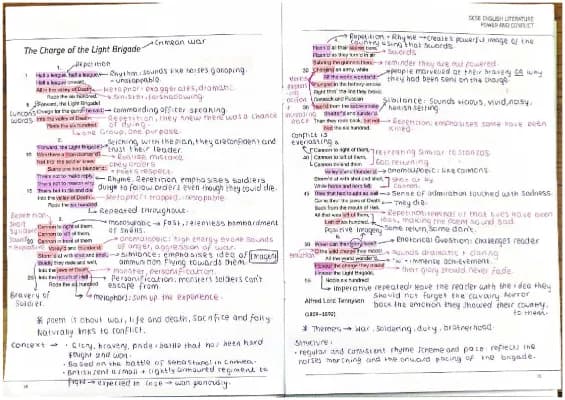 The Charge of the Light Brigade → Crimean war
1.
Repetition
Half a league, half a league,
Half a league onward,
All in the valley of Death
Rode the six hundred.
'Forward, the Light Brigade!
Charge for the guns!' he said:
Into the valley of Death
Rode the six hundred.
Rhythm: sounds like horses galloping.
unstoppable.
Metaphor: exaggerates, dramatic.
Sinister/foreshadowing
commanding officer speaking
Repetition, they knew there was a chance of dying.
one Group, one purpose.
2.
'Forward, the Light Brigade!'
Was there a man dismay'd?
Not tho' the soldier knew
Some one had blunder'd:
Theirs not to make reply,
Theirs not to reason why,
Theirs but to do and die:
Into the valley of Death
Rode the six hundred.
Sticking with the plan, they are confident and trust their leader.
Realise mistake
obey orders
respect
Rhyme. Repetition emphasises soldiers
duty to follow orders even though they could die.
Metaphor: trapped, inescapable.
Repeated throughout.
3.
Cannon to right of them,
Cannon to left of them,
Cannon in front of them
Volley'd and thunder'd;
Storm'd at with shot and shell,
Boldly they rode and well,
Into the jaws of Death,
Into the mouth of Hell
Rode the six hundred.
Fast, relentless bombardment
of shells.
Onomatopoeic: high energy evoke sounds
of anger, aggression of war.
Sibilance: emphasises idea of
ammunition flying towards them.
Imagery
Monster, personification.
Personification: monsters soldiers can't
escape from
metaphor: sum up the experience.
Bravery of
Soldier.
* poem is about war, life and death, sacrifice and folly
Naturally links to conflict.
Context →
glory, bravery, pride: battle that has been hard
fought and won.
Based on the battle of
British sent a small + lightly armoured regiment to
fight → expected to lose → won
GCSE ENGLISH LITERATURE
POWER AND CONFLICT
4.
Repetition + Rhyme → creates powerful image of the
country using their swords.
Flash'd all their sabres bare,
Flash'd as they turn'd in air
Sabring the gunners there,
Charging an army, while
All the world wonder'd:
Plunged in the battery-smoke
Right thro' the line they broke;
Cossack and Russian
Reel'd from the sabre-stroke
Shatter'd and sunder'd.
Then they rode back, but not
Not the six hundred.
Swords
reminder they are not powered.
people marvelled at their bravery OR why
they had been sent on the charge
Sibilance: Sounds vicious, vivid, noisy,
Repetition: emphasises some have been
killed.
Conflict is
everlasting
5.
Cannon to right of them,
Cannon to left of them,
Cannon behind them
Volley'd and thunder'd;
Storm'd at with shot and shell,
While horse and hero fell,
They that had fought so well
Came thro' the jaws of Death
Back from the mouth of Hell,
All that was left of them,
Left of six hundred.
retreating similar to stanza 3
returning
Onomatopoeic: like cannons
Shot at by
cannon.
Sense of admiration touched with sadness.
They die.
Repetition: reminder that lives have been
loss, making the poem sound sad
Some return, some don't.
Positive Imagery
6.
When can their glory fade?
O the wild charge they made!
All the world wonder'd.
Honour the charge they made!
Honour the Light Brigade,
Noble six hundred!
Rhetorical Question: challenges reader
Sounds dramatic + daring
Immense achievement.
their glory should never fade.
Imperative repeated: leave the reader with the idea they
should not forget the cavalry. Horror
back the emotion they showed their country
to them.
Alfred Lord Tennyson
(1809–1892)
* Themes → War, Soldiering, duty, brotherhood
Structure:
• regular and consistent rhyme scheme and pace: reflects the
horses marching and the onward pacing of the brigade.